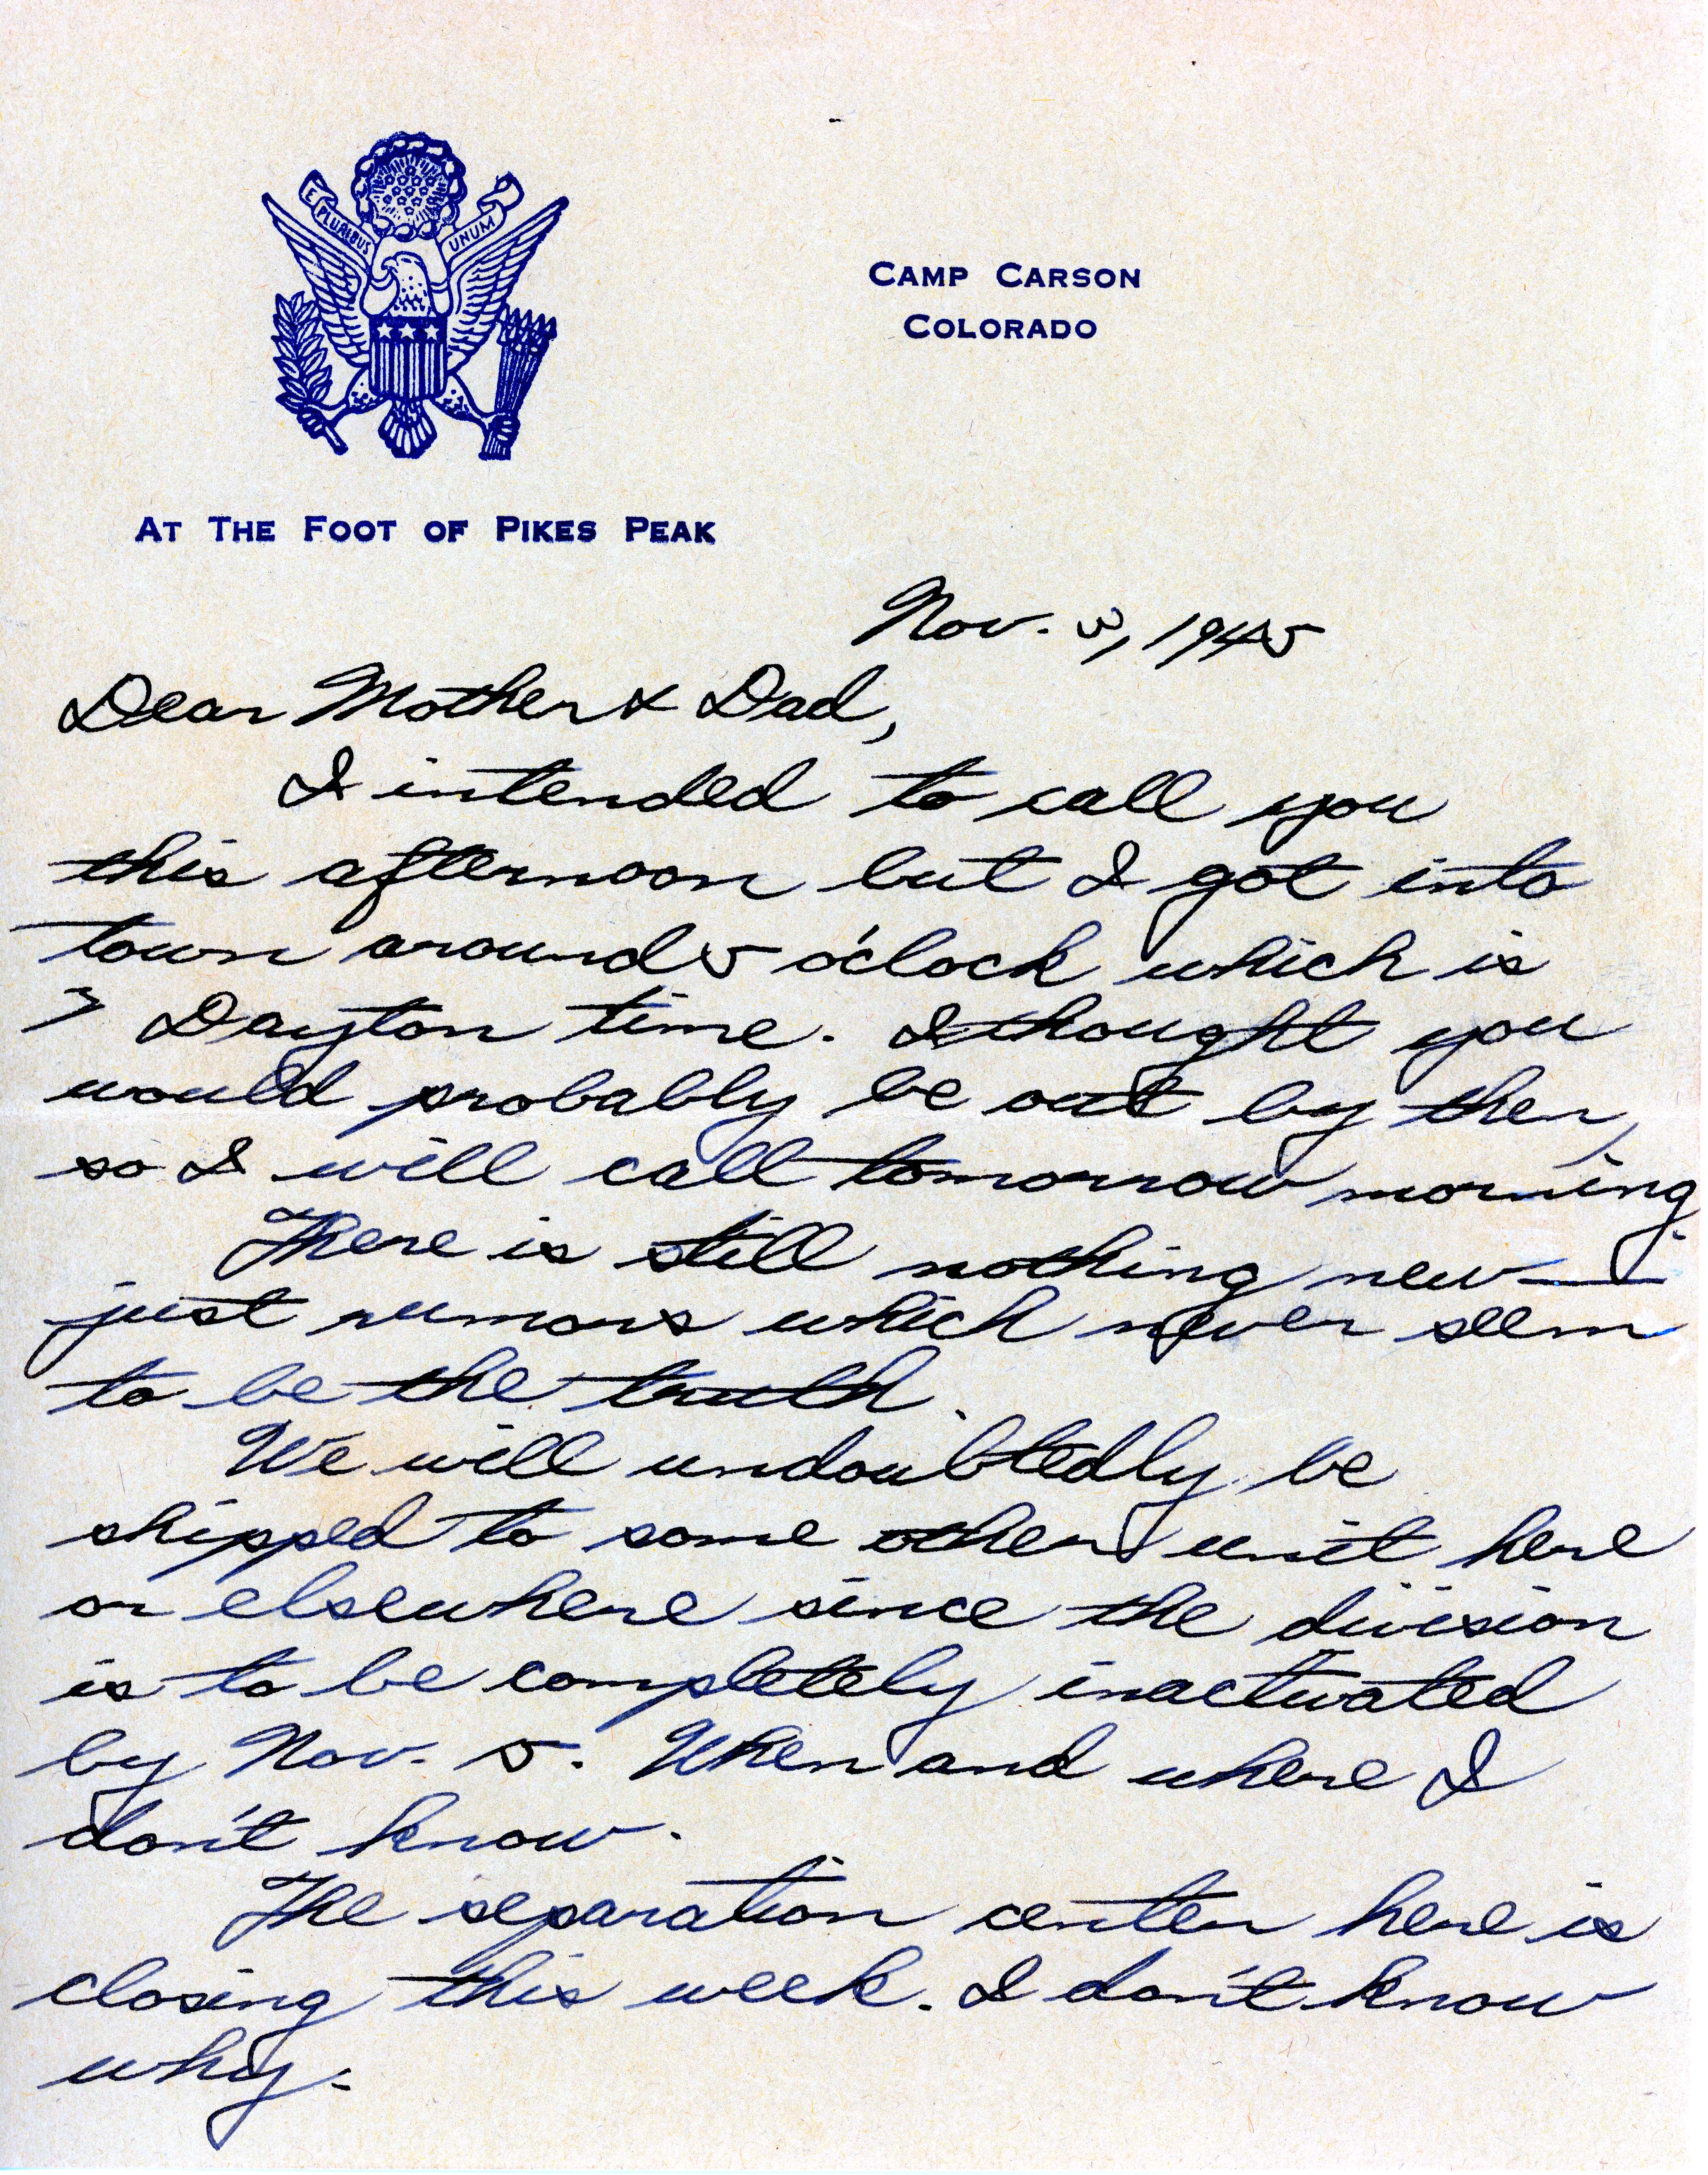 E PLURIBUS UNUM
CAMP CARSON
COLORADO
AT THE FOOT OF PIKES PEAK
Nov. 3, 1945
Dear Mother & Dad,
I intended to call you
this afternoon but I got into
town around 5 o'clock which is
7 Dayton time. I thought you
would probably be out by then,
so I will call tomorrow morning.
There is still nothing new —
just rumors which never seem
to be the truth.
We will undoubtedly be
shipped to some other unit here
or elsewhere since the division
is to be completely inactivated
by Nov. 5. When and where I
don't know.
The separation center here is
closing this week. I don't know
why.